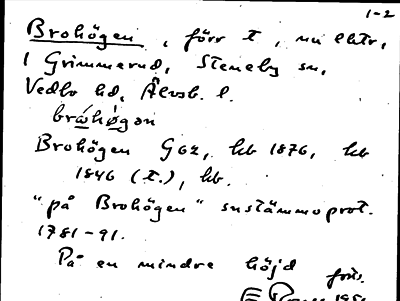 1-2
Brohögen, förr t, nu lhtr,
i Grimmerud, Steneby sn,
Vedbo hd, Älvsb. l.
bråhø̀gan
Brohögen G62, hb 1876, hb
1846 (t.), hb.
"på Brohögen" sustämmoprot.
1781-91.
På en mindre höjd forts.